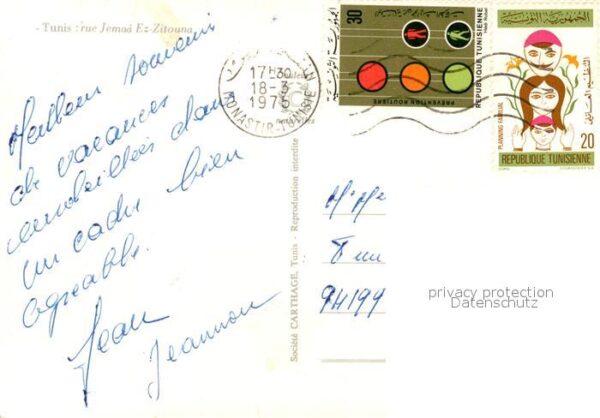 - Tunis : rue Jemaâ Ez-Zitouna
Meilleur souvenir
de vacances
ensoleillées dans
un cadre bien
agréable.
Jean
Jeannou
17H30
18-3
1975
MONASTIR-TUNISIE
Société CARTHAGE, Tunis - Reproduction interdite
30
الجمهورية التونسية
REPUBLIQUE TUNISIENNE
PREVENTION ROUTIERE
الجمهورية التونسية
التنظيم العائلي
PLANNING FAMILIAL
20
REPUBLIQUE TUNISIENNE
94199
privacy protection
Datenschutz